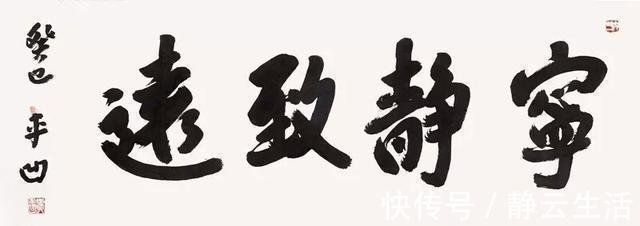 寧静致遠
癸巳
平凹
快传号 / 静云生活